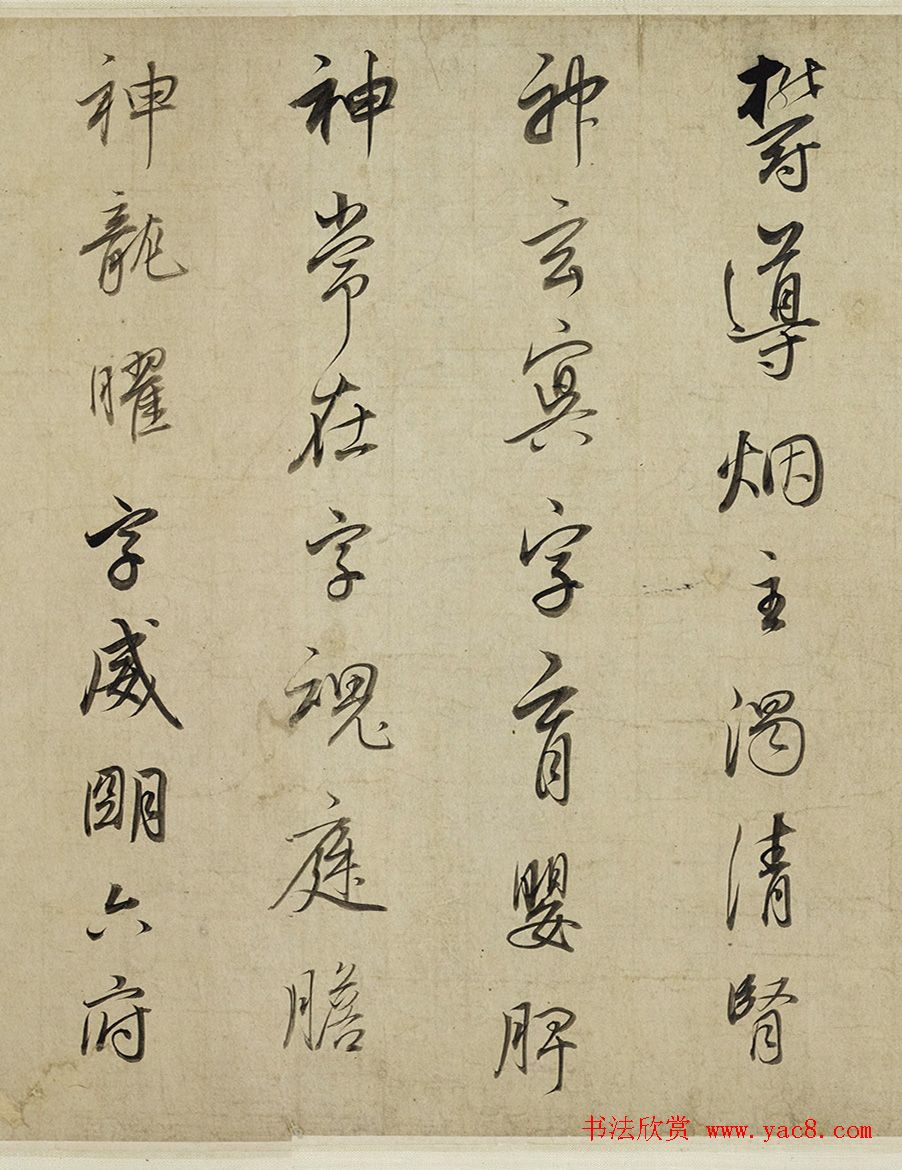 欝導烟主濁清腎
神玄冥字育嬰脾
神常在字魂庭膽
神龍曜字威明六府
书法欣赏 www.yac8.com